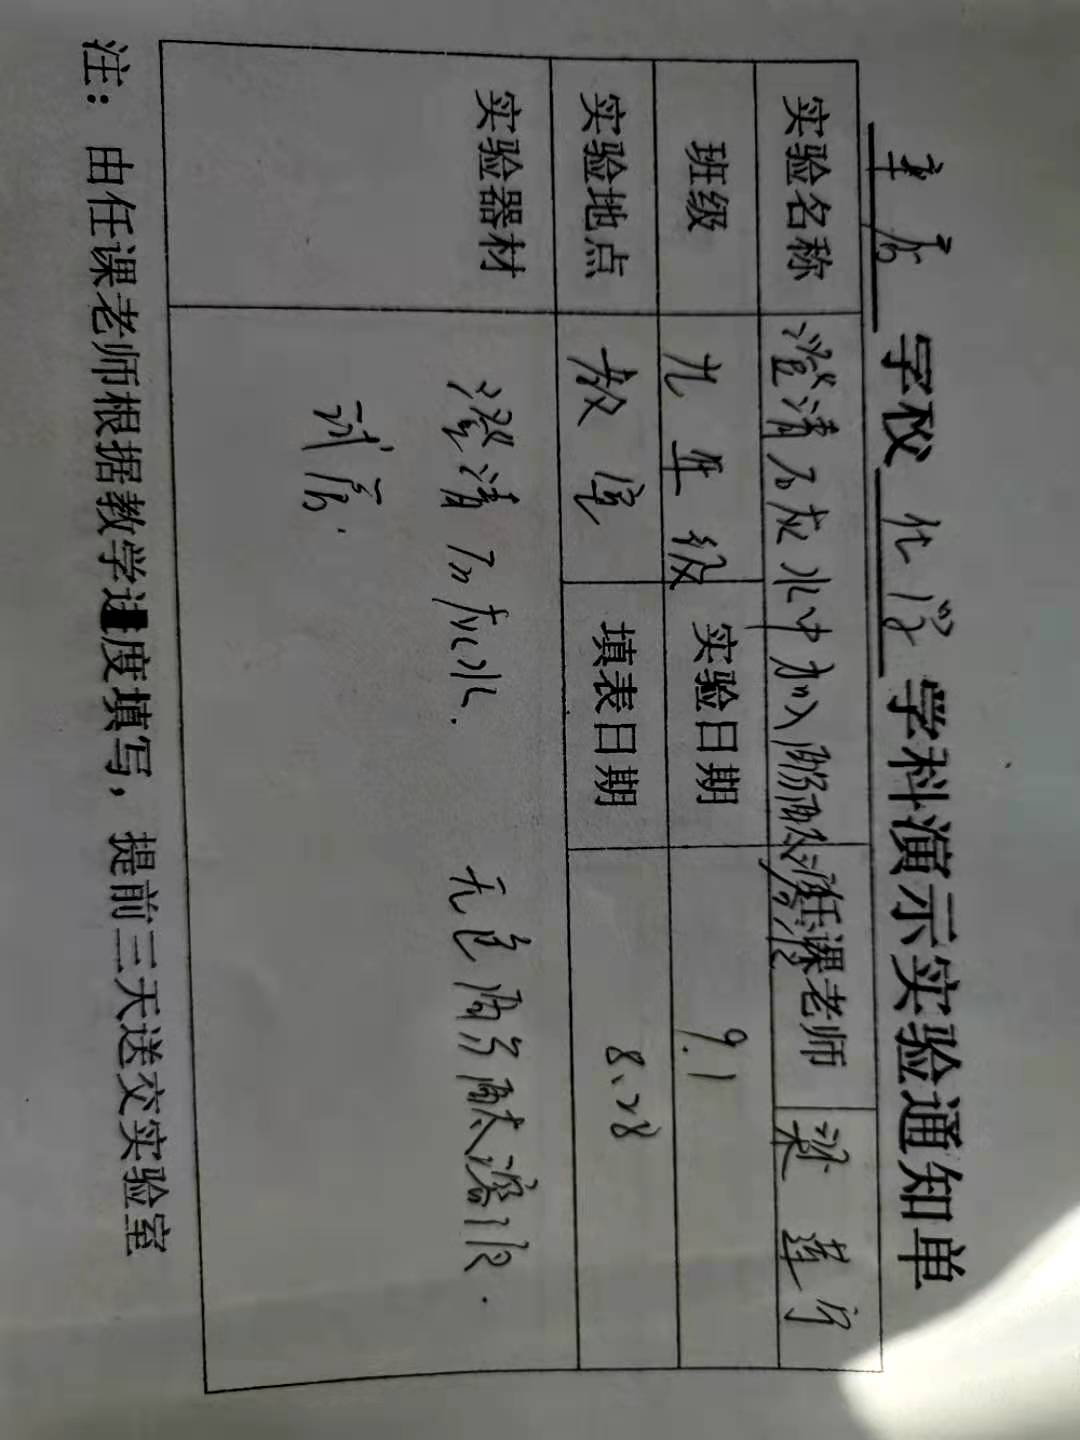 学校 化学 学科演示实验通知单
实验名称 澄清石灰水中加入酚酞溶液 任课老师 梁莲
班级 九年级 实验日期 9.1
实验地点 教室 填表日期 8.28
实验器材 澄清石灰水. 无色酚酞溶液.
试管.
注：由任课老师根据教学进度填写，提前三天送交实验室